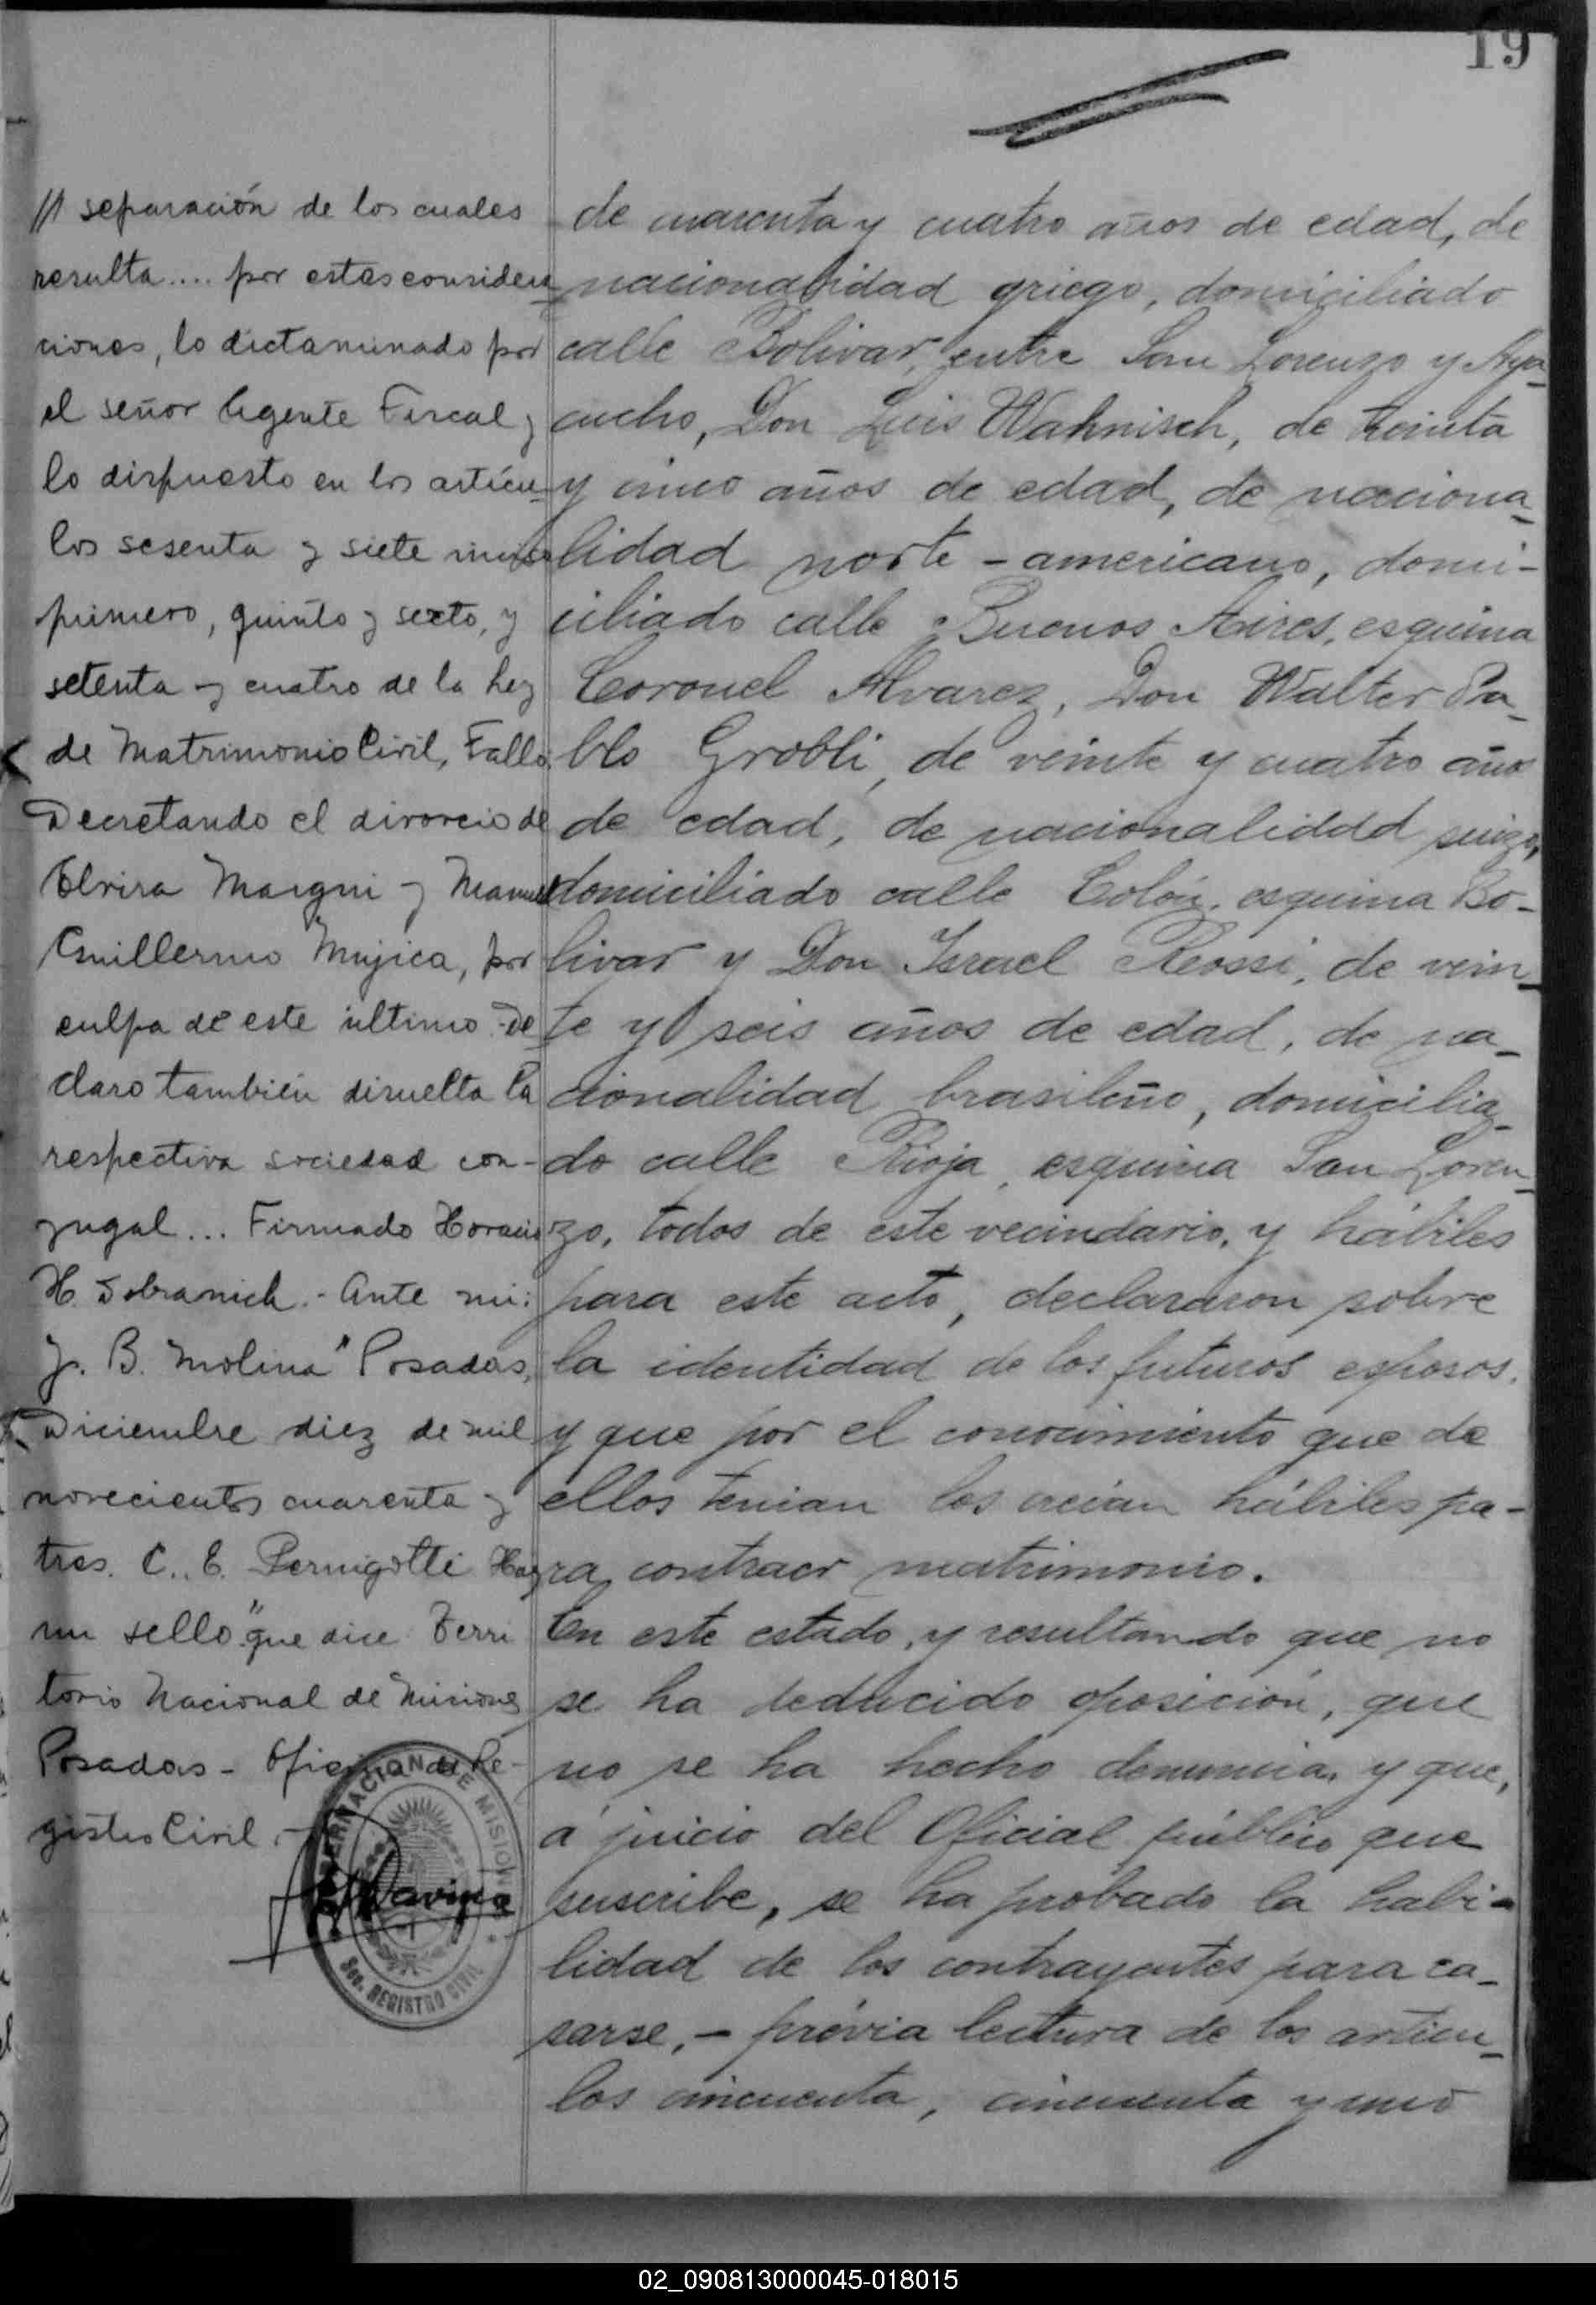 19
// separación de los cuales
resulta.... por estas considera
ciones, lo dictaminado por
el señor Agente Fiscal y
lo dispuesto en los artícu-
los sesenta y siete inciso
primero, quinto y sexto, y
setenta y cuatro de la Ley
de Matrimonio Civil, Fallo:
Decretando el divorcio de
Elvira Margni y Manuel
Guillermo Mujica, por
culpa de este último. De
claro también disuelta la
respectiva sociedad con-
yugal... Firmado Horacio
H. Dobranich.- Ante mi:
J. B. Molina" Posadas,
Diciembre diez de mil
novecientos cuarenta y
tres. C. E. Pernigotti Hay
un sello "que dice Terri
torio Nacional de Misiones
Posadas - Oficina de Re-
gistro Civil.-
de cuarenta y cuatro años de edad, de
nacionalidad griego, domiciliado
calle Bolivar, entre San Lorenzo y Aya-
cucho, Don Luis Wahnisch, de treinta
y cinco años de edad, de naciona-
lidad norte-americano, domi-
ciliado calle Buenos Aires, esquina
Coronel Alvarez, Don Walter Pa-
blo Grobli, de veinte y cuatro años
de edad, de nacionalidad suizo,
domiciliado calle Colón, esquina Bo-
livar y Don Israel Rossi, de vein-
te y seis años de edad, de na-
cionalidad brasileño, domicilia-
do calle Rioja, esquina San Loren-
zo, todos de este vecindario, y hábiles
para este acto, declararon sobre
la identidad de los futuros esposos,
y que por el conocimiento que de
ellos tenian los creian hábiles pa-
ra contraer matrimonio.
En este estado, y resultando que no
se ha deducido oposición, que
no se ha hecho denuncia, y que,
á juicio del Oficial público que
suscribe, se ha probado la habi-
lidad de los contrayentes para ca-
sarse, - prévia lectura de los artícu-
los cincuenta, cincuenta y uno
GOBERNACION DE MISIONES
Sec. REGISTRO CIVIL
02_090813000045-018015